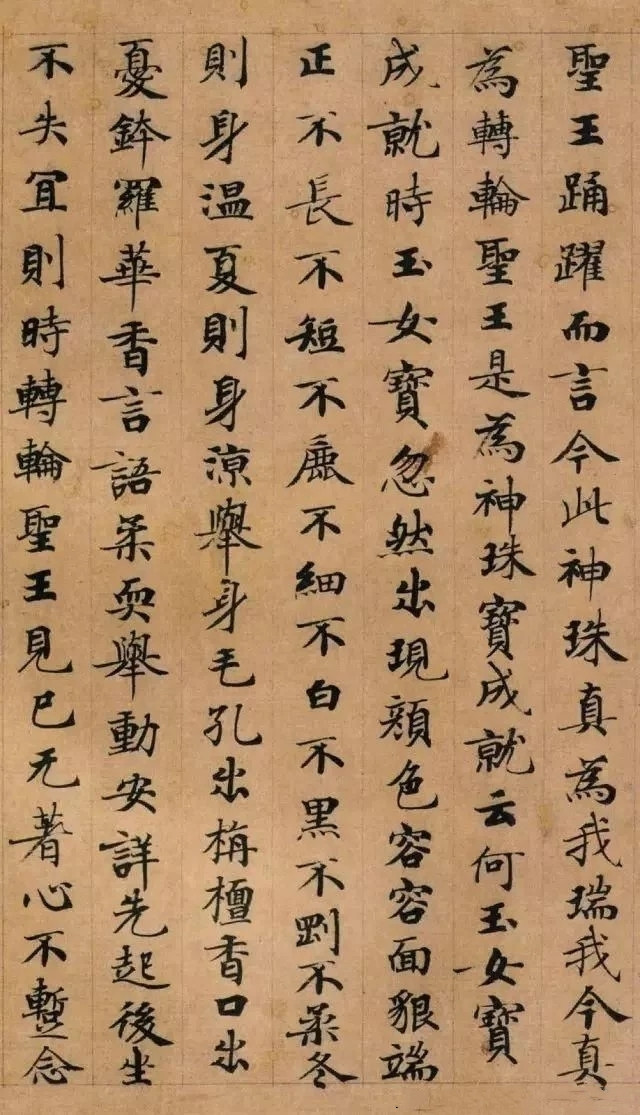 聖王踊躍而言今此神珠真為我瑞我今真
為轉輪聖王是為神珠寶成就云何玉女寶
成就時玉女寶忽然出現顏色容容面貌端
正不長不短不麁不細不白不黑不剛不柔冬
則身溫夏則身涼舉身毛孔出栴檀香口出
憂鉢羅華香言語柔耎舉動安詳先起後坐
不失冝則時轉輪聖王見已无著心不暫念